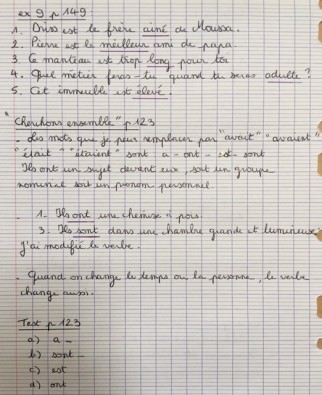 ex 9 p 149
1. Driss est le frère aîné de Moussa.
2. Pierre est le meilleur ami de papa.
3. Ce manteau est trop long pour toi
4. Quel métier feras-tu quand tu seras adulte ?
5. Cet immeuble est élevé.
"Cherchons ensemble" p 123
- Les mots que je peux remplacer par "avait" "avaient"
"était" "étaient" sont a - ont - est - sont
Ils ont un sujet devant eux, soit un groupe
nominal soit un pronom personnel.
- 1. Ils ont une chemise à pois.
3. Ils sont dans une chambre grande et lumineuse.
J'ai modifié le verbe.
- Quand on change le temps ou la personne, le verbe
change aussi.
Test p 123
a) a -
b) sont -
c) est
d) ont